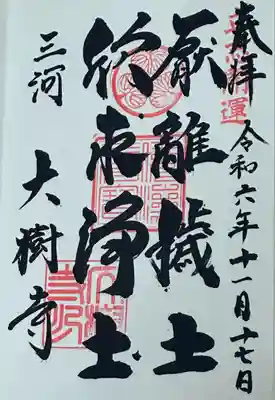 奉拝
令和六年十一月十七日
厭離穢土
欣求浄土
三河
大樹寺